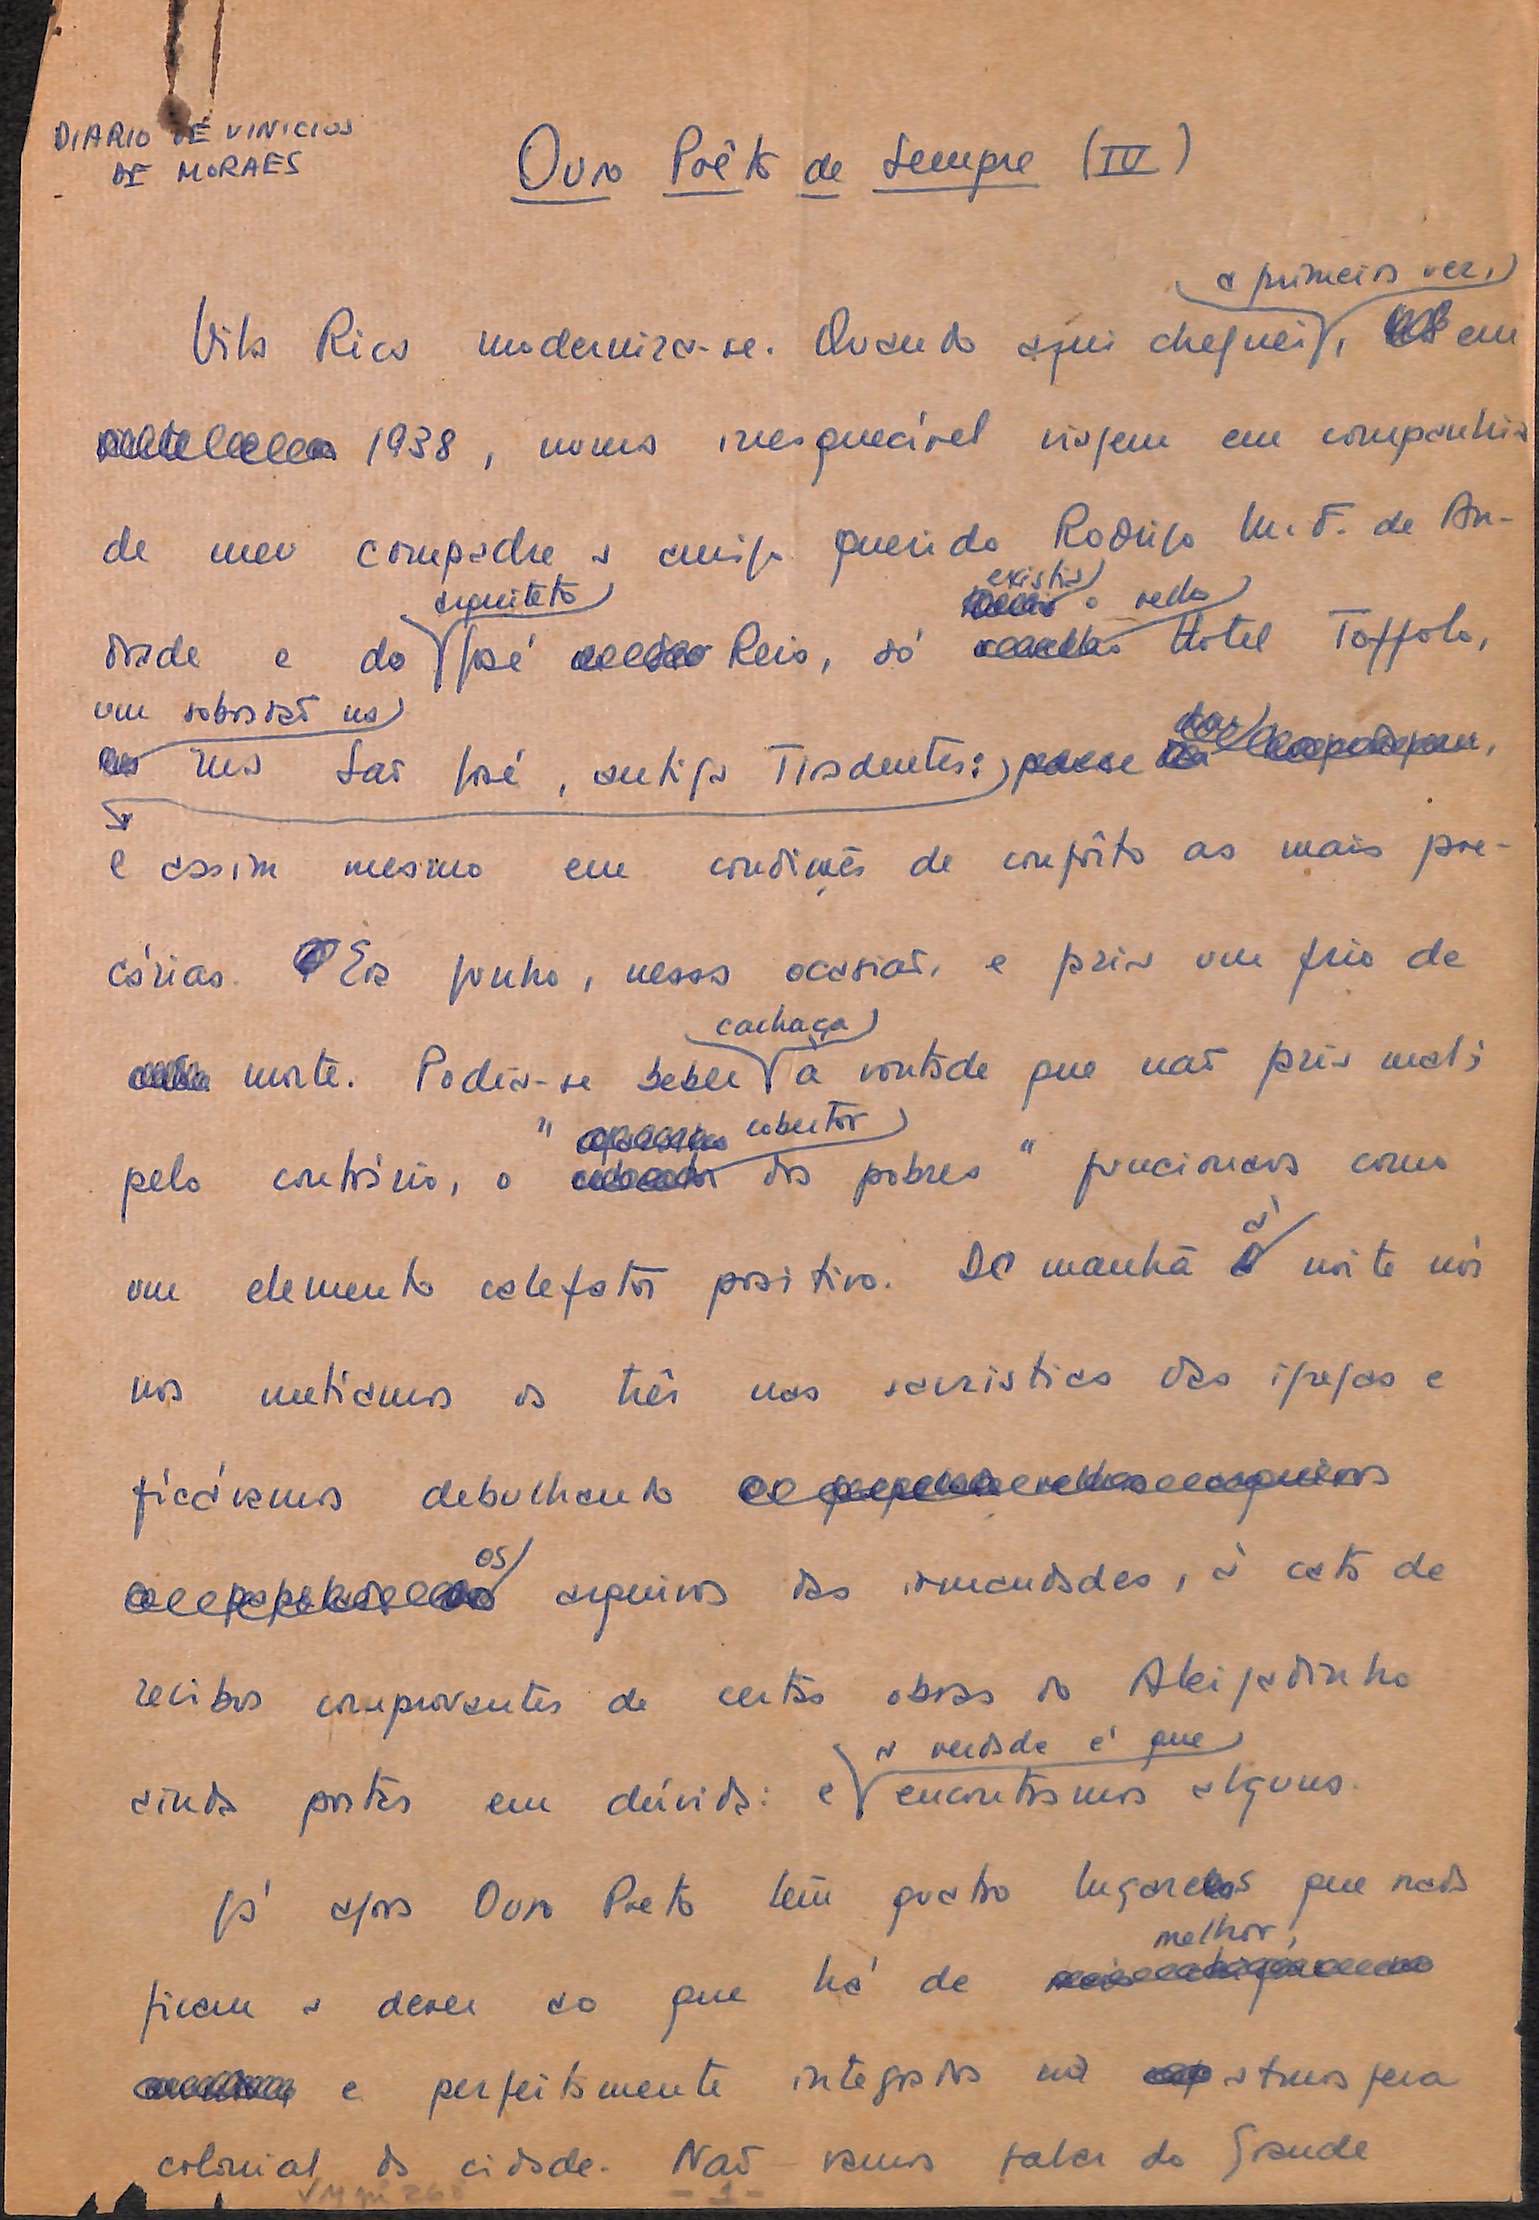 DIARIO DE VINICIOS
DE MORAES
Ouro Prêto de sempre (IV)
a primeira vez,
Vila Rica moderniza-se. Quando aqui cheguei, em
1938, numa inesquecível viagem em companhia
de meu compadre e amigo querido Rodrigo M. F. de An-
arquiteto existia o velho
drade e do José Reis, só Hotel Toffolo,
um sobradão na
rua São José, antiga Tiradentes:
e assim mesmo em condições de confôrto as mais pre-
cárias. Era junho, nessa ocasião, e fazia um frio de
cachaça
morte. Podia-se beber à vontade que não fazia mal;
" cobertor
pelo contrário, o dos pobres" funcionava como
à
um elemento calefator positivo. De manhã noite nós
nos metíamos os três nas sacristias das igrejas e
ficávamos debulhando
os
arquivos das irmandades, à cata de
recibos comprovantes de certas obras do Aleijadinho
a verdade é que
ainda postas em dúvida: e encontramos alguns.
Já agora Ouro Preto tem quatro lugares que nada
melhor,
ficam a dever ao que há de
e perfeitamente integrados na atmosfera
colonial da cidade. Não vamos falar do Grande
- 1 -